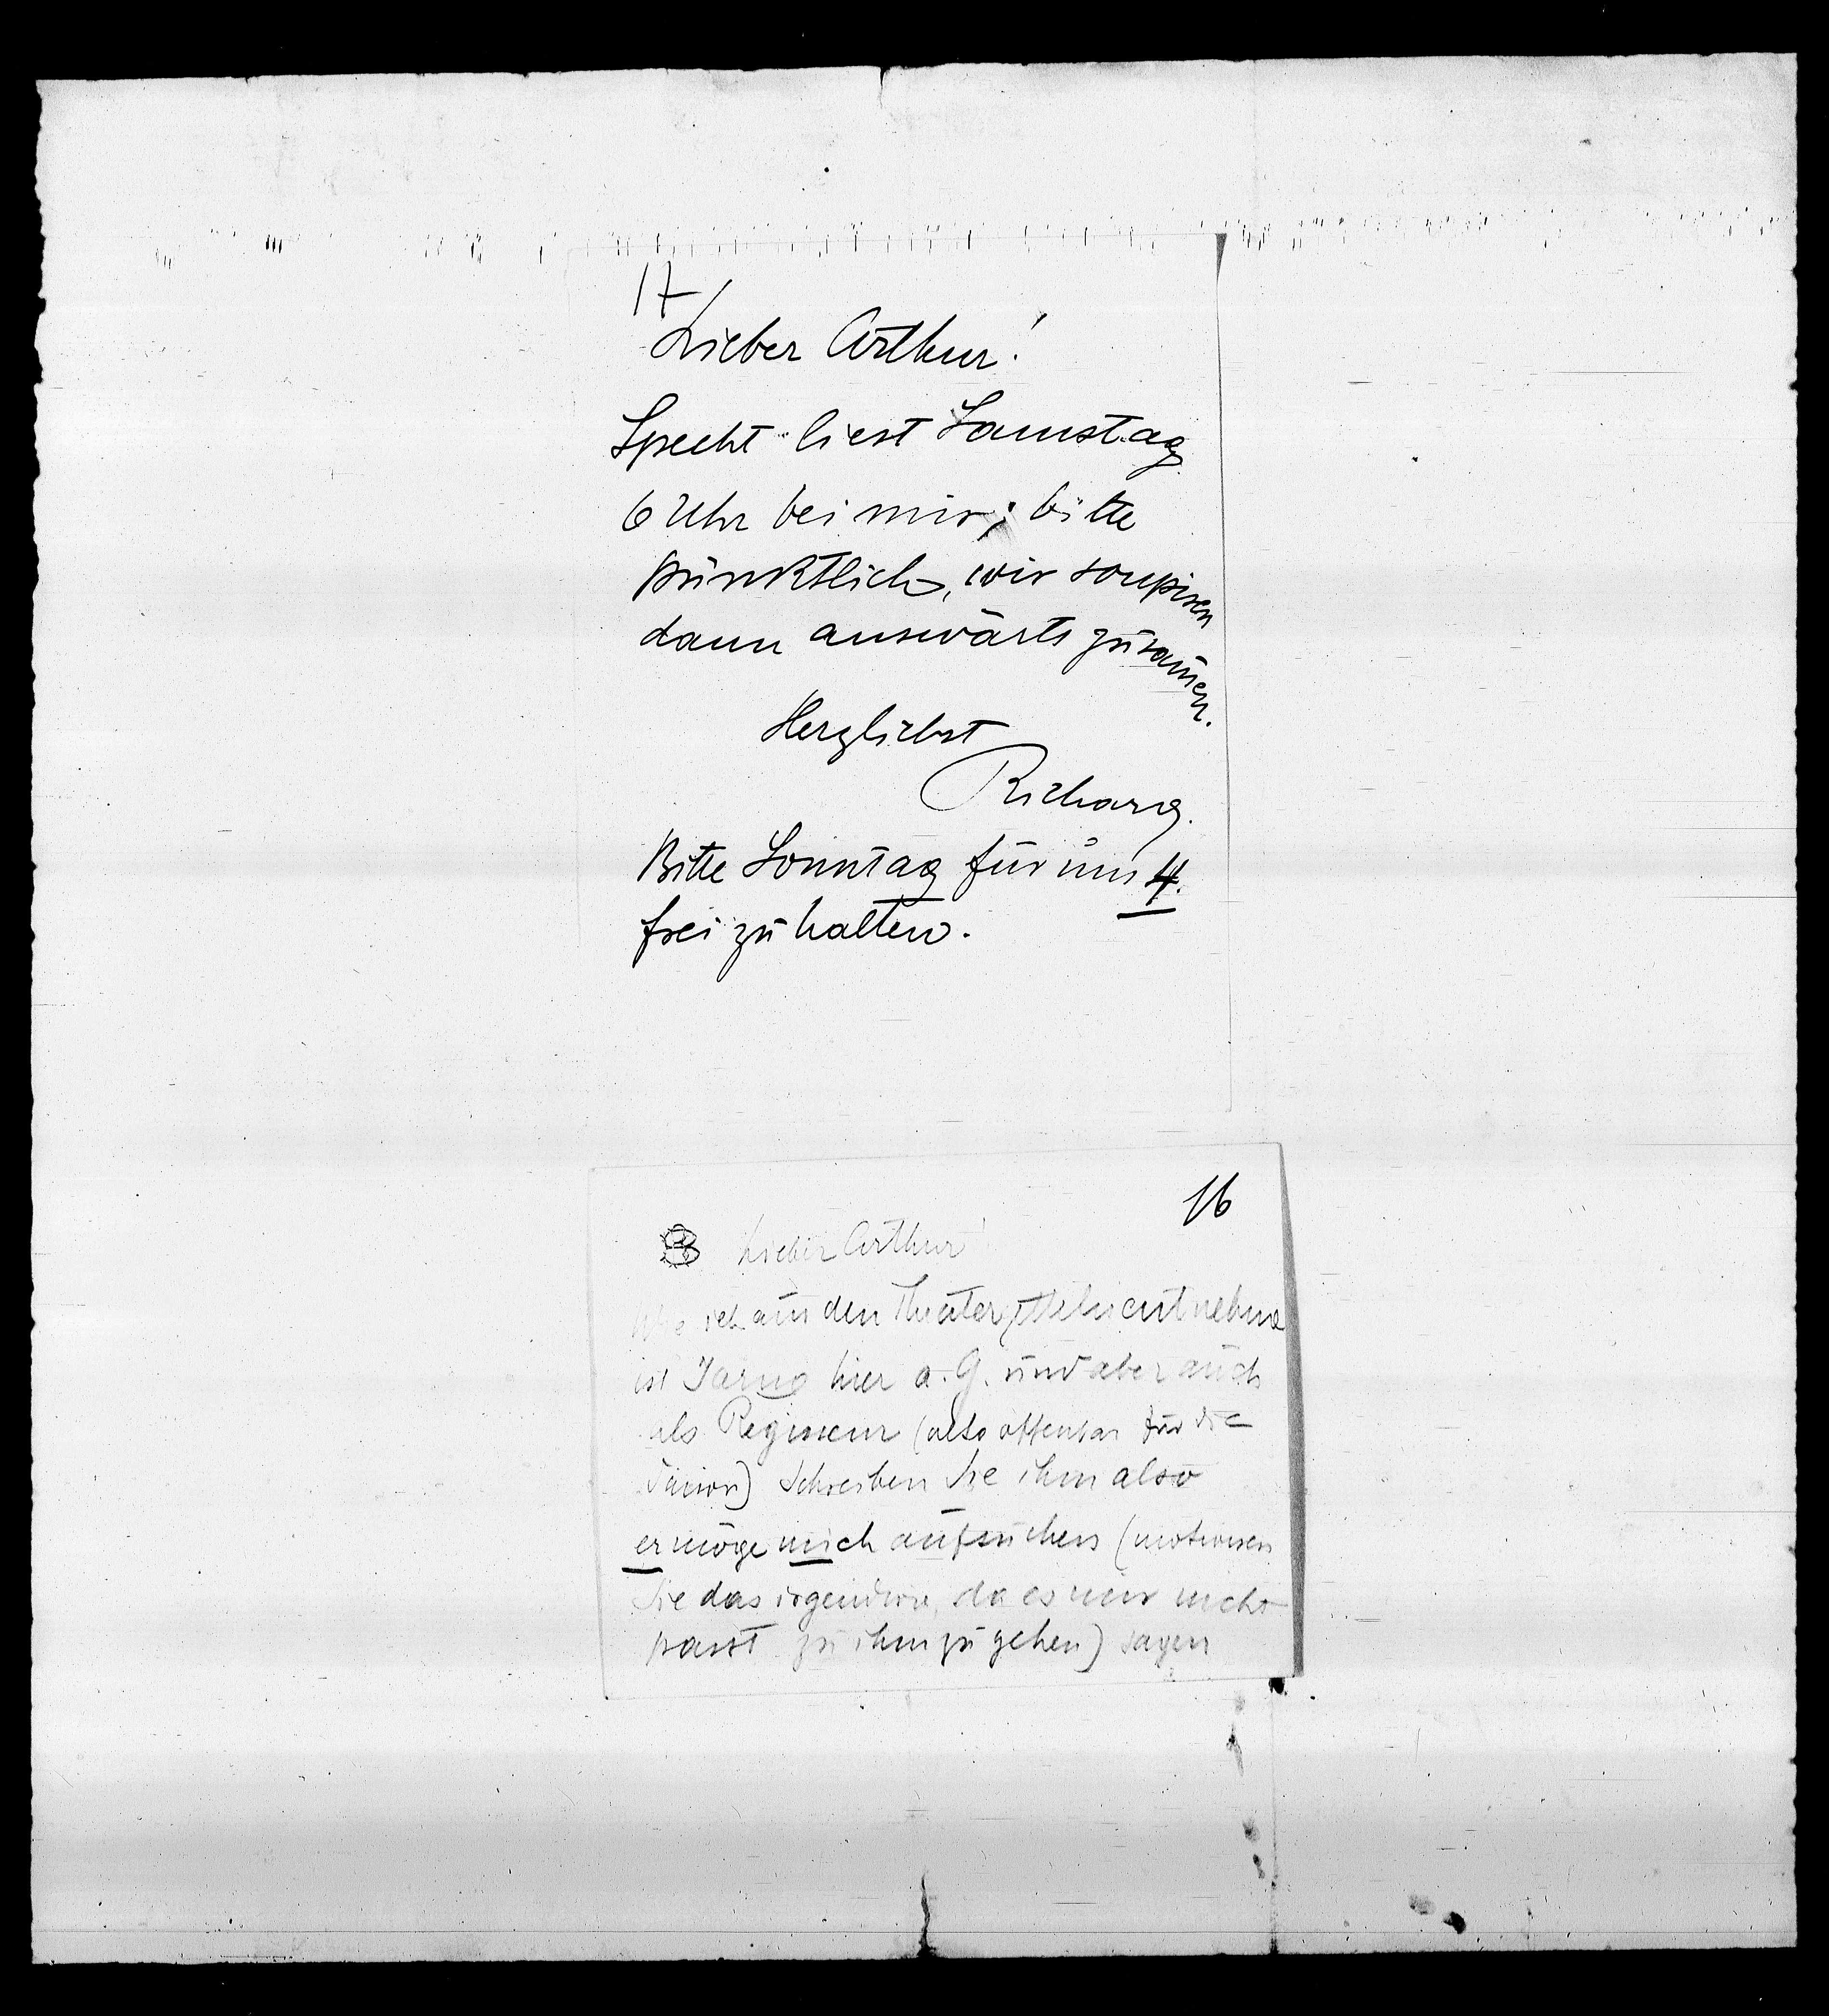 17
Lieber Arthur!
Specht liest Samstag
6 Uhr bei mir; bitte
pünktlich, wir soupiren
dann auswärts zusam̄en.
Herzlichst
Richard.
Bitte Sonntag für uns 4.
frei zu halten.
16
Lieber Arthur!
Wie ich aus den Theaterzetteln entnehme
ist Jarno hier a. G. und aber auch
als Regisseur (also offenbar für die
Saison) Schreiben Sie ihm also
er möge mich aufsuchen (motiviren
Sie das irgendwie, da es mir nicht
passt zu ihm zu gehen) sagen